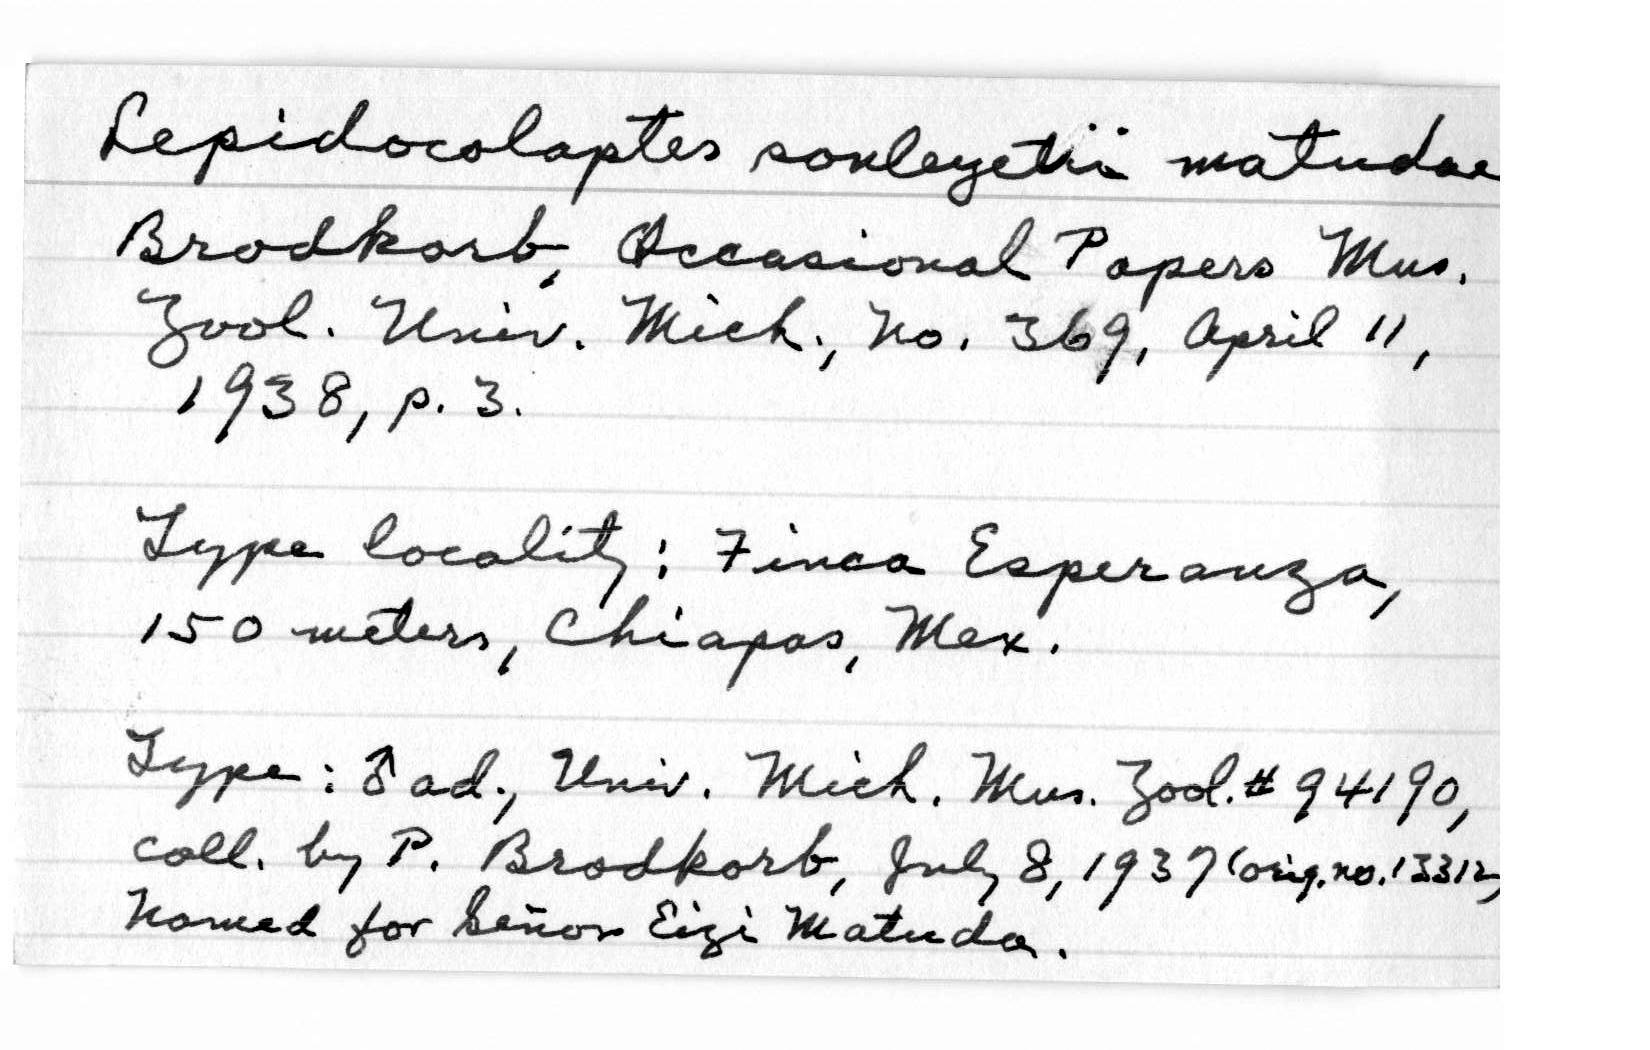 Lepidocolaptes souleyetii matudae
Brodkorb, Occasional Papers Mus.
Zool. Univ. Mich., No. 369, April 11,
1938, p. 3.
Type locality: Finca Esperanza,
150 meters, Chiapas, Mex.
Type: ♂ ad., Univ. Mich. Mus. Zool. # 94190,
coll. by P. Brodkorb, July 8, 1937 (orig. no. 13312)
Named for Señor Eizi Matuda.